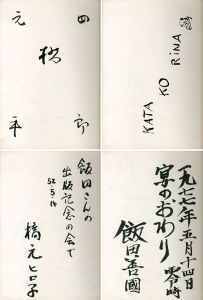 元 四
橋
平 郎
KATA KO RiNA
飯田さんの
出版記念の会で
52.5.14
橋元ヒロ子
一九七七年五月十四日
零時
宴のおわり
飯田善國